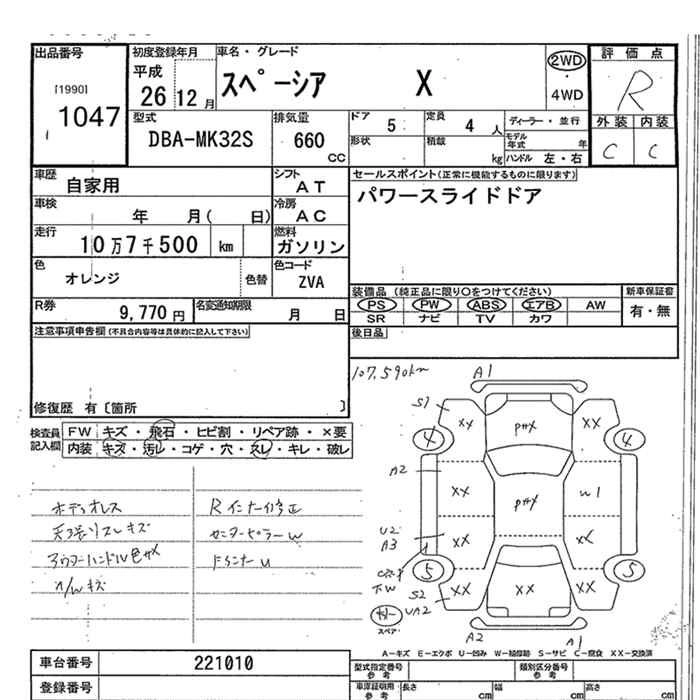 出品番号 初度登録年月 車名・グレード 評価点
[1990] 平成 スペーシア X 2WD R
1047 26 12月 ・ 4WD
型式 排気量 ドア 5 定員 4人 ディーラー・並行 外装 内装
DBA-MK32S 660 CC 形状 積載 kg モデル年式 年 ハンドル 左・右 C C
車歴 自家用 シフト AT セールスポイント(正常に機能するものに限ります)
車検 年 月( 日) 冷房 AC パワースライドドア
走行 10万7千500 km 燃料 ガソリン
色 オレンジ 色替 色コード ZVA
装備品 (純正品に限り○をつけてください) 新車保証書
R券 9,770円 名変通知期限 月 日 PS PW ABS エアB AW 有・無
SR ナビ TV カワ
注意事項申告欄(不具合内容等は具体的に記入して下さい) 後日品
修復歴 有〔箇所 〕
検査員記入欄 FW キズ・飛石・ヒビ割・リペア跡・×要
内装 キズ・汚レ・コゲ・穴・スレ・キレ・破レ
107,590km
A1
S1
XX P#X XX
4 4
A2
XX P#X W1
U2
A3 XX XX
5 5
S2 XX XX XX
UA2
スペア
A2 A1
ボディオレス
天張リスレキズ
アウターハンドル色ガメ
R インナー修正
センターピラーW
A-キズ E-エクボ U-凹み W-補修跡 S-サビ C-腐食 XX-交換済
車台番号 221010 型式指定番号 参考 類別区分番号 参考
登録番号 車庫証明用 参考 長さ cm 幅 cm 高さ cm